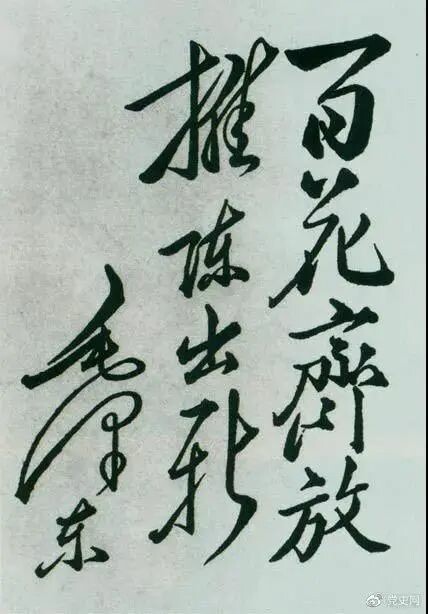 百花齊放
推陈出新
毛泽东
@党史网